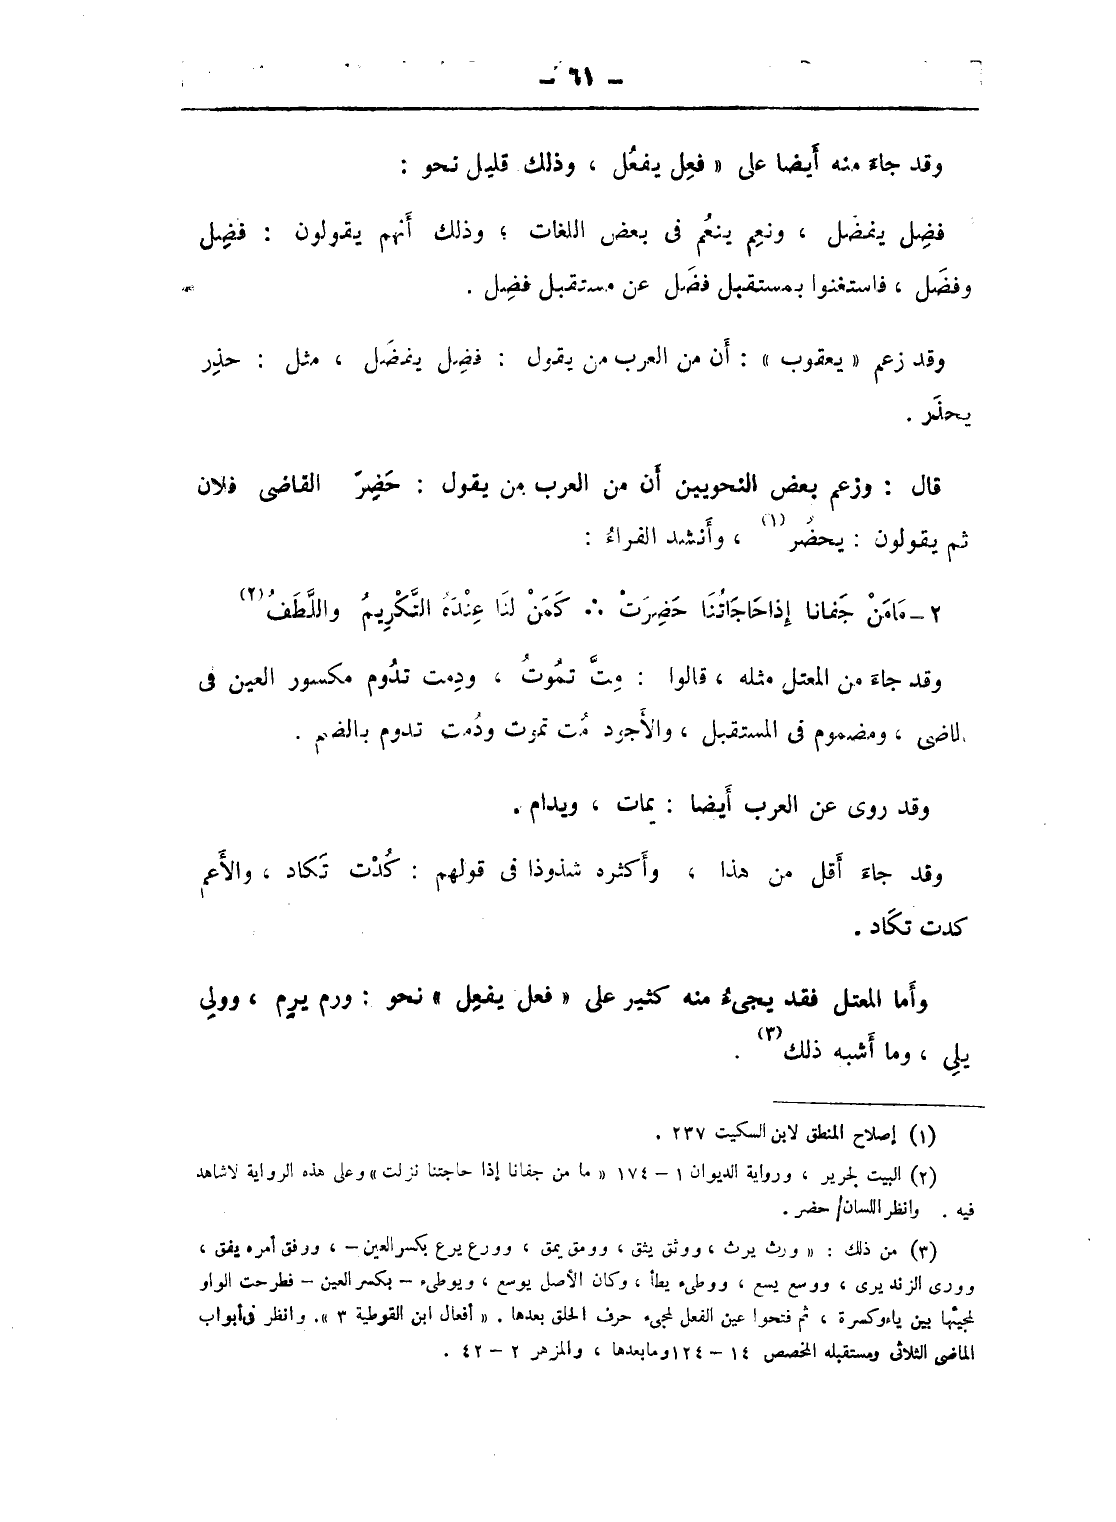 – ٦١ –
وقد جاءَ منه أَيضا على « فعِل يفعُل ، وذلك قليل نحو :
فضِل يفضَل ، ونعِم ينعُم فى بعض اللغات ؛ وذلك أَنهم يقولون : فضِل
وفضَل ، فاستغنوا بمستقبل فضَل عن مستقبل فضِل .
وقد زعم « يعقوب » : أَن من العرب من يقول : فضِل يفضَل ، مثل : حذِر
يحذَر .
قال : وزعم بعض النحويين أَن من العرب من يقول : حَضِرَ القاضى فلان
ثم يقولون : يحضُر (١) ، وأَنشد الفراءُ :
٢ – مَامَنْ جَفانا إِذاحَاجَاتُنَا حَضِرَتْ ∴ كَمَنْ لنَا عِنْدَهُ التَّكْرِيمُ واللَّطَفُ (٢)
وقد جاءَ من المعتل مثله ، قالوا : مِتَّ تمُوتُ ، ودِمت تدُوم مكسور العين فى
الماضى ، ومضموم فى المستقبل ، والأَجود مُت تموت ودُمت تدوم بالضم .
وقد روى عن العرب أَيضا : يمات ، ويدام .
وقد جاءَ أَقل من هذا ، وأَكثره شذوذا فى قولهم : كُدْت تَكاد ، والأَعم
كدت تكَاد .
وأَما المعتل فقد يجىءُ منه كثير على « فعل يفعِل » نحو : ورم يرِم ، وولِى
يلِى ، وما أَشبه ذلك (٣) .
(١) إصلاح المنطق لابن السكيت ٢٣٧ .
(٢) البيت لجرير ، ورواية الديوان ١ – ١٧٤ « ما من جفانا إذا حاجتنا نزلت » وعلى هذه الرواية لاشاهد
فيه . وانظر اللسان/ حضر .
(٣) من ذلك : « ورث يرث ، ووثق يثق ، وومق يمق ، وورع يرع بكسر العين – ، ورفق أمره يفق ،
وورى الزند يرى ، ووسع يسع ، ووطىء يطأ ، وكان الأصل يوسع ، ويوطىء – بكسر العين – فطرحت الواو
لمجيئها بين ياء وكسرة ، ثم فتحوا عين الفعل لمجىء حرف الحلق بعدها . « أفعال ابن القوطية ٣ ». وانظر فى أبواب
الماضى الثلاثى ومستقبله المخصص ١٤ – ١٢٤ ومابعدها ، والمزهر ٢ – ٤٢ .